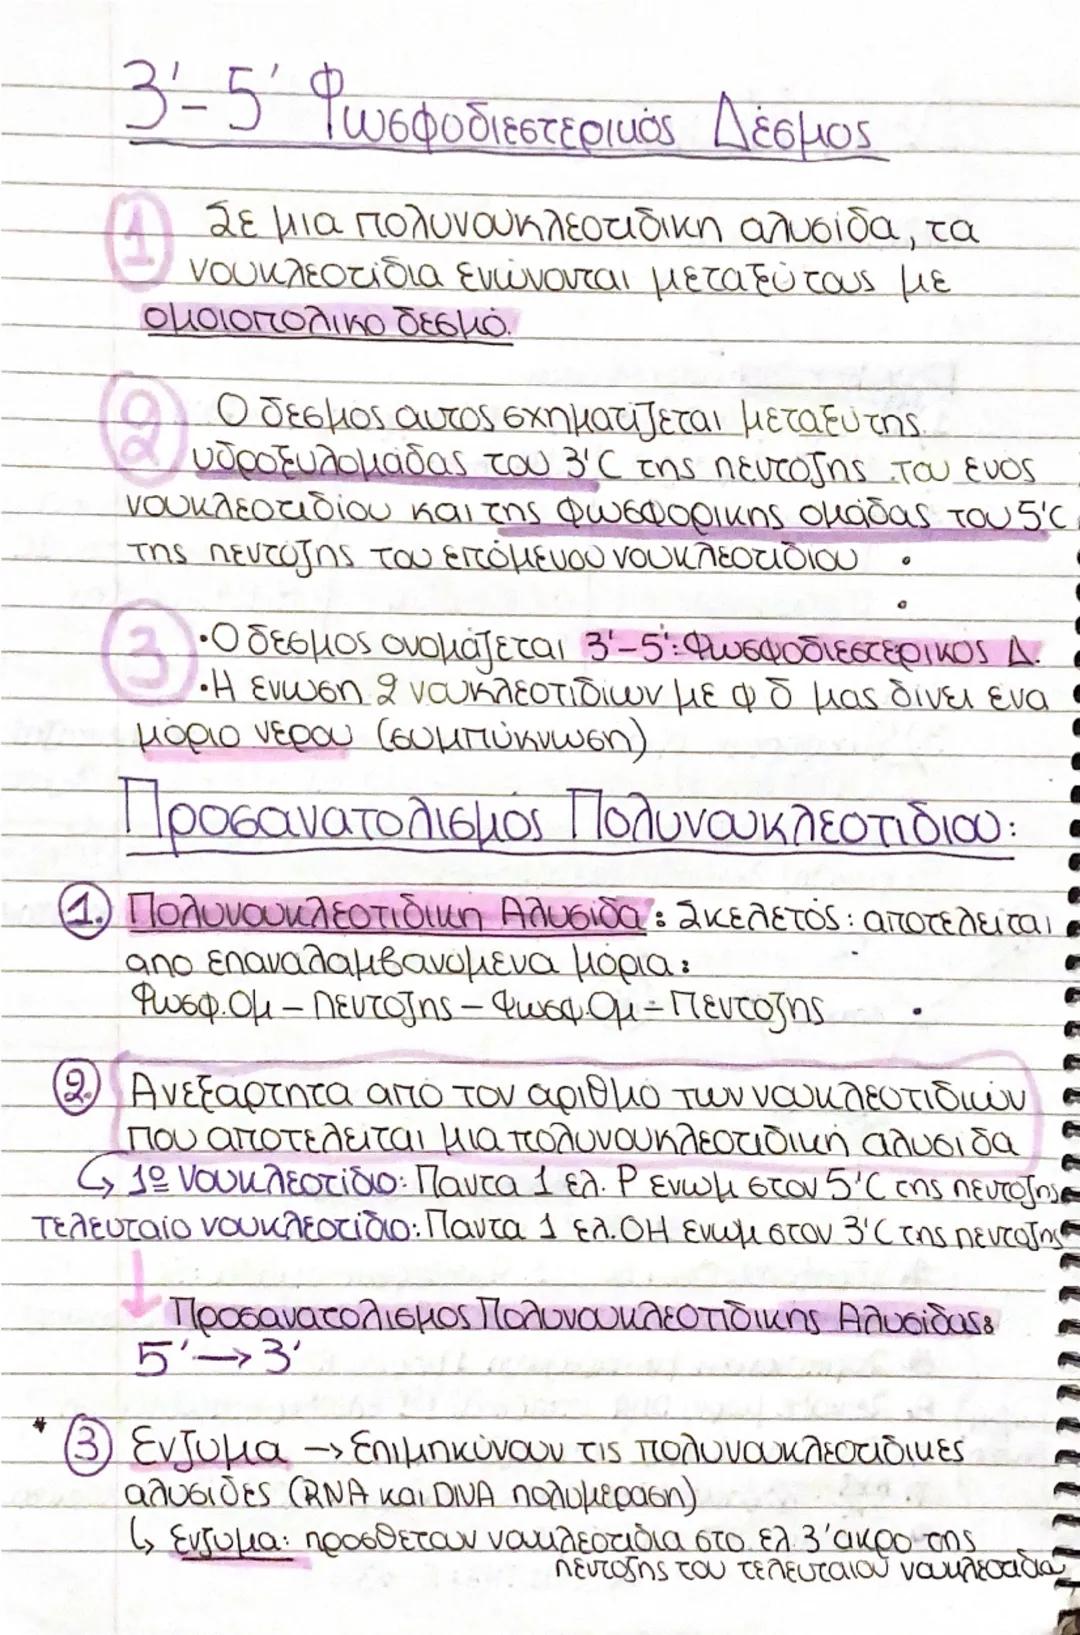 3'-5' Φωσφοδιεστερικός Δέσμος
1 Σε μια πολυνουκλεοτιδικη αλυσίδα, τα
νουκλεοτίδια ενώνονται μεταξύ τους με
ομοιοπολικο δεσμό.
2 Ο δεσμος αυτος σχηματιζεται μεταξυ της
υδροξυλομαδας του 3'C της πεντοζης του ενος
νουκλεοτιδίου και της φωσφορικης ομάδας του 5'C
της πεντόζης του επόμενου νουκλεοτιδιου
3 •Ο δεσμος ονομάζεται 3'-5': Φωσφοδιεστερικος Δ.
•Η ενωση 2 νουκλεοτιδίων με φ δ μας δίνει ένα
μόριο νερου (συμπύκνωση)
Προσανατολισμός Πολυνουκλεοτιδιου:
1. Πολυνουκλεοτιδικη Αλυσιδα: Σκελετός: αποτελείται
απο επαναλαμβανόμενα μόρια:
Φωσφ.Ομ - Πεντοζης - Φωσφ.Ομ - Πεντοζης
2. Ανεξαρτητα από τον αριθμό των νουκλεοτιδιών
που αποτελειται μια πολυνουκλεοτιδική αλυσιδα
↳ 1º νουκλεοτίδιο: Παντα 1 ελ. P ενωμ στον 5'C της πεντοζης
τελευταίο νουκλεοτίδιο: Παντα 1 ελ. OH ενωμ στον 3'C της πεντοζης
↓ Προσανατολισμος Πολυνουκλεοτιδικης Αλυσίδας:
5' → 3'
* 3 Ενζυμα → Επιμηκύνουν τις πολυνουκλεοτιδικες
αλυσιδες (RNA και DNA πολυμεραση)
↳ Ενζυμα: προσθετουν νουκλεοτιδια στο ελ. 3' ακρο της
πεντοζης του τελευταιου νουκλεοτιδια